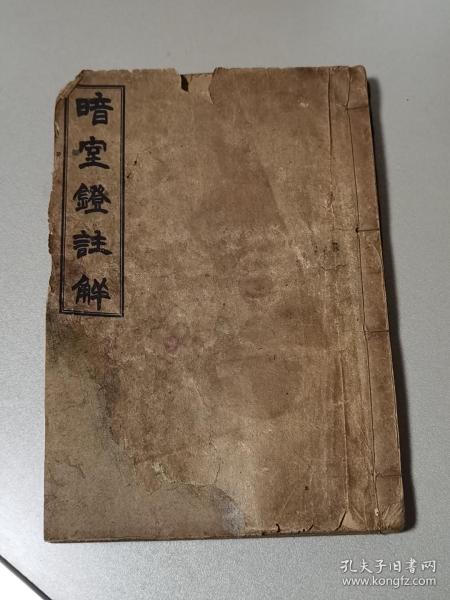 暗室鐙註解
孔夫子旧书网
www.kongfz.com